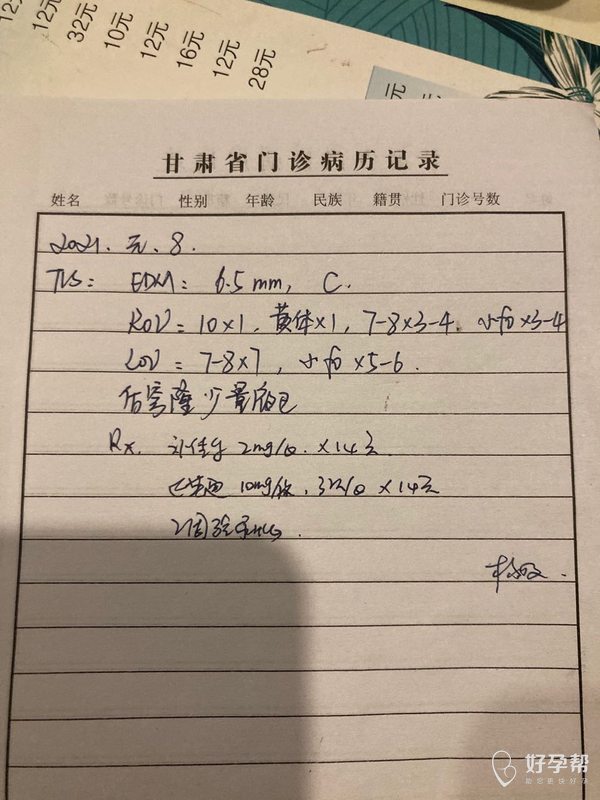 12元
12元
32元
10元
12元
16元
12元
28元
元
甘肃省门诊病历记录
姓名 性别 年龄 民族 籍贯 门诊号数
2021.元.8.
TVS: EDM: 6.5mm, C.
ROV=10×1, 黄体×1, 7-8×3-4. 小fo×3-4
LOV=7-8×7, 小fo×5-6.
后穹隆少量液区
Rx. 补佳乐 2mg/日 ×14天
10mg/ ×14天
2周验血HCG.
好孕帮
助您更快好孕